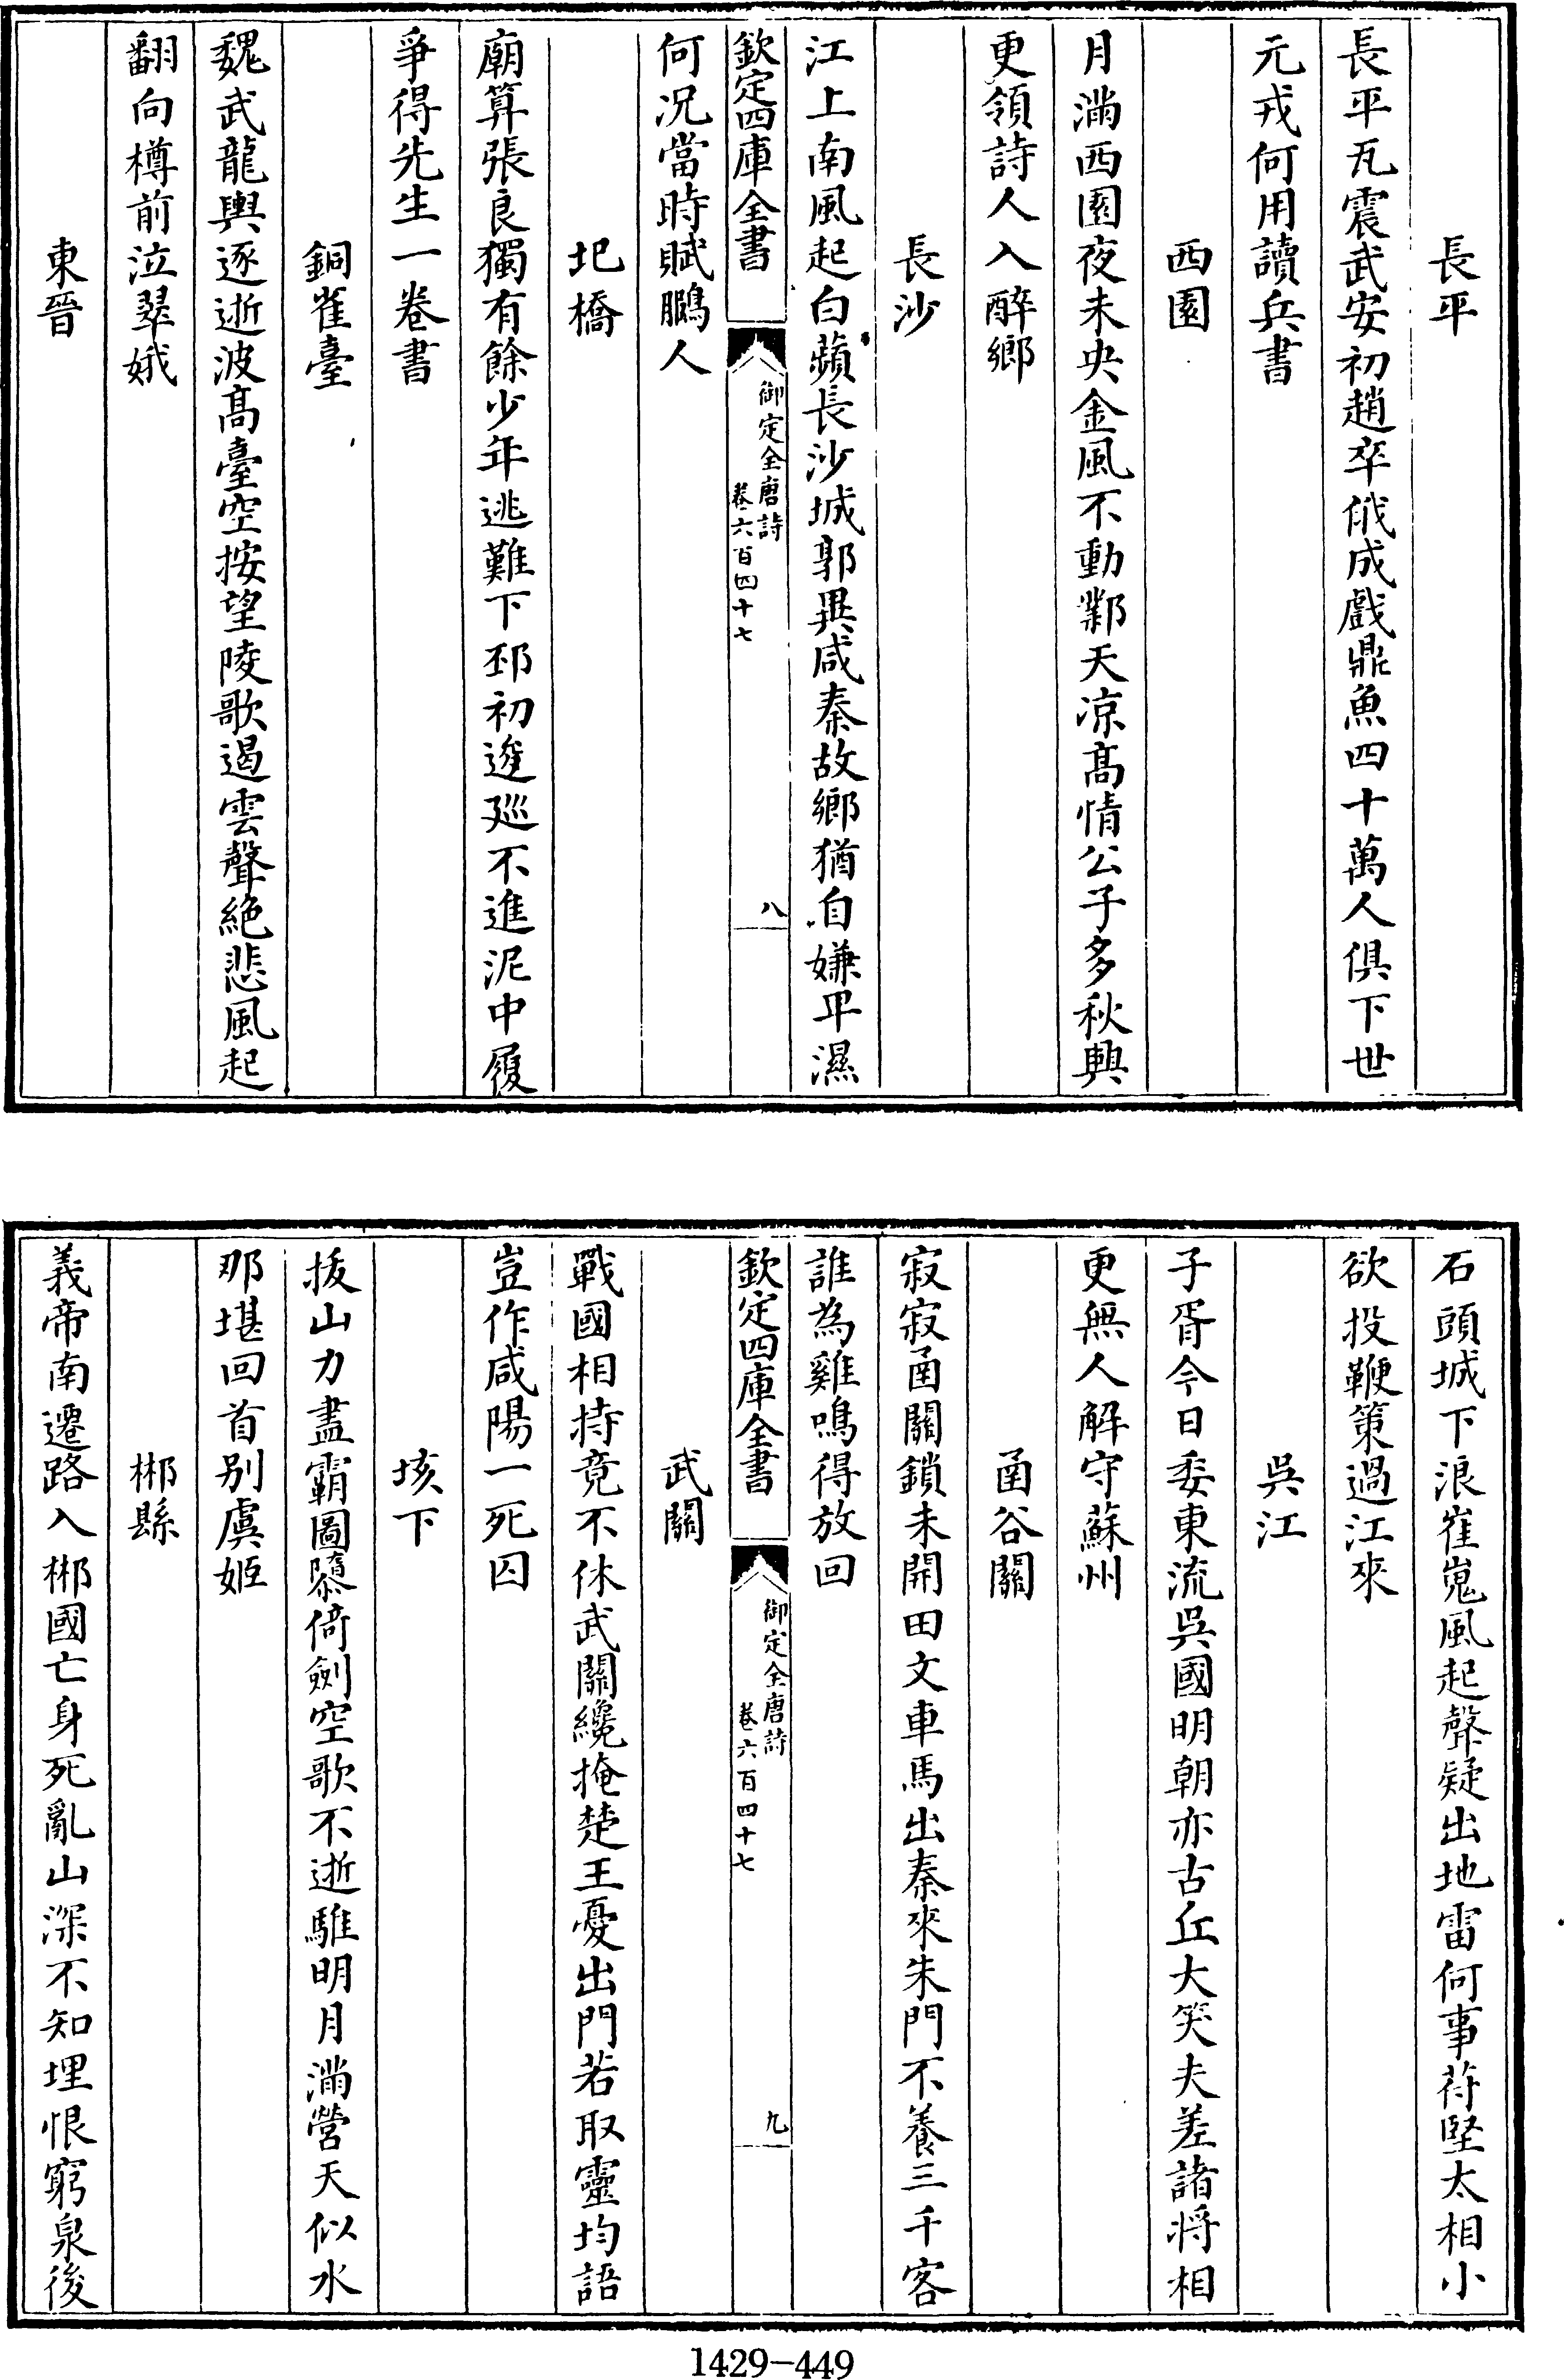 長平
長平瓦震武安初趙卒俄成戲鼎魚四十萬人俱下世
元戎何用讀兵書
西園
月滿西園夜未央金風不動鄴天凉髙情公子多秋興
更領詩人入醉鄉
長沙
江上南風起白蘋長沙城郭異咸秦故鄉猶自嫌卑濕
欽定四庫全書
御定全唐詩
卷六百四十七
八
何况當時賦鵩人
圯橋
廟算張良獨有餘少年逃難下邳初逡廵不進泥中履
爭得先生一卷書
銅雀臺
魏武龍輿逐逝波髙臺空按望陵歌遏雲聲絶悲風起
翻向樽前泣翠娥
東晉
石頭城下浪崔嵬風起聲疑出地雷何事苻堅太相小
欲投鞭策過江來
吳江
子胥今日委東流吳國明朝亦古丘大笑夫差諸將相
更無人解守蘇州
函谷關
寂寂函關鎖未開田文車馬出秦來朱門不養三千客
誰為雞鳴得放回
欽定四庫全書
御定全唐詩
卷六百四十七
九
武關
戰國相持竟不休武關纔掩楚王憂出門若取靈均語
豈作咸陽一死囚
垓下
拔山力盡霸圖隳倚劒空歌不逝騅明月滿營天似水
那堪回首别虞姬
郴縣
義帝南遷路入郴國亡身死亂山深不知埋恨窮泉後
1429-449